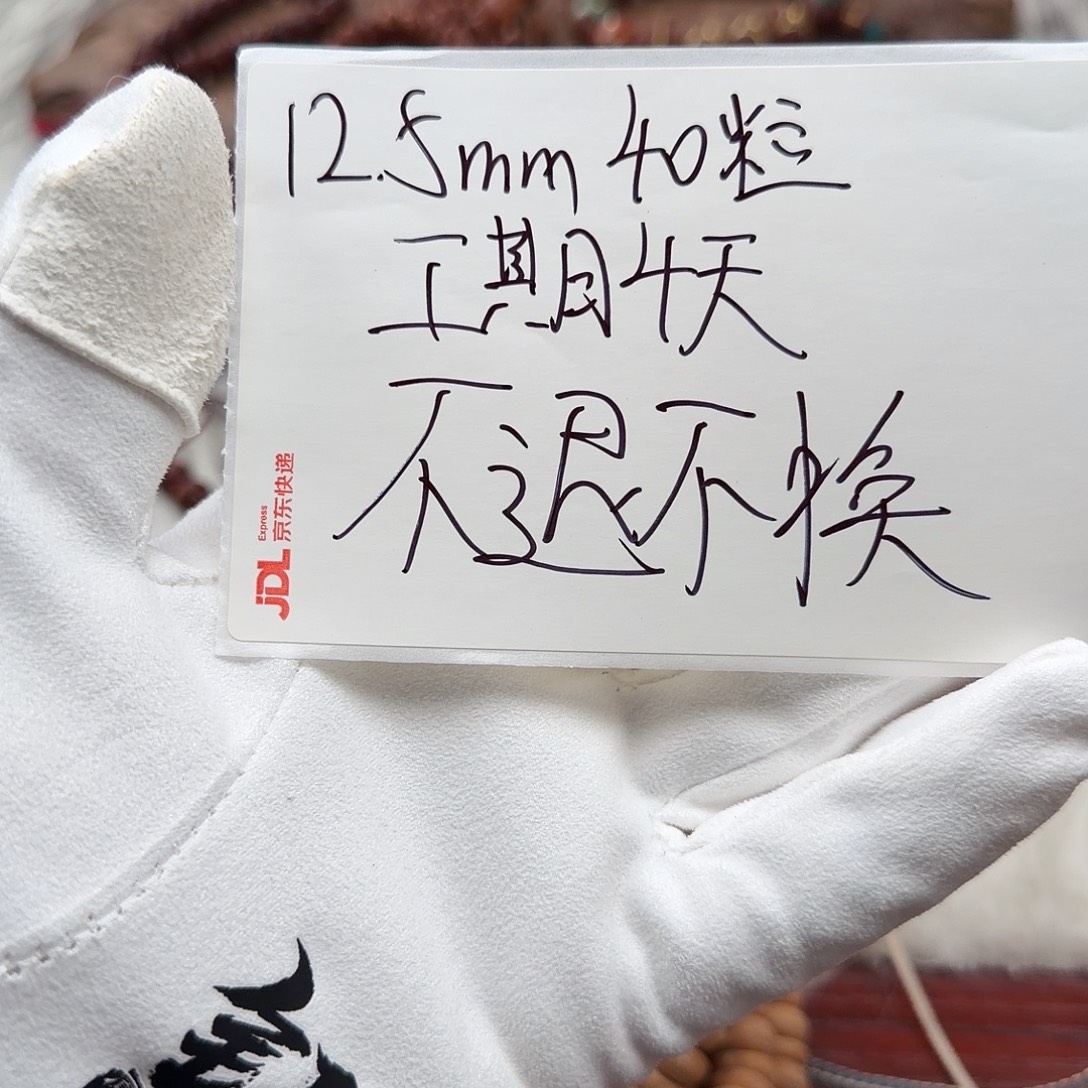 12.5mm 40粒
工期4天
不退不换
JDL
Express
京东快递